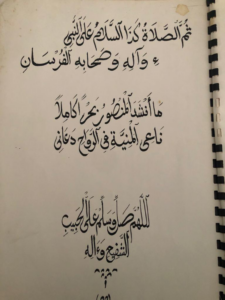 ثم الصلاة كذا السلام على النبي
ء وآله وصحابه الفرسان
ما أنشد المنصور بحرا كاملا
ناعي المنية في الرواح دعاني
اللهم صل وسلم على الحبيب
الشفيع وءاله